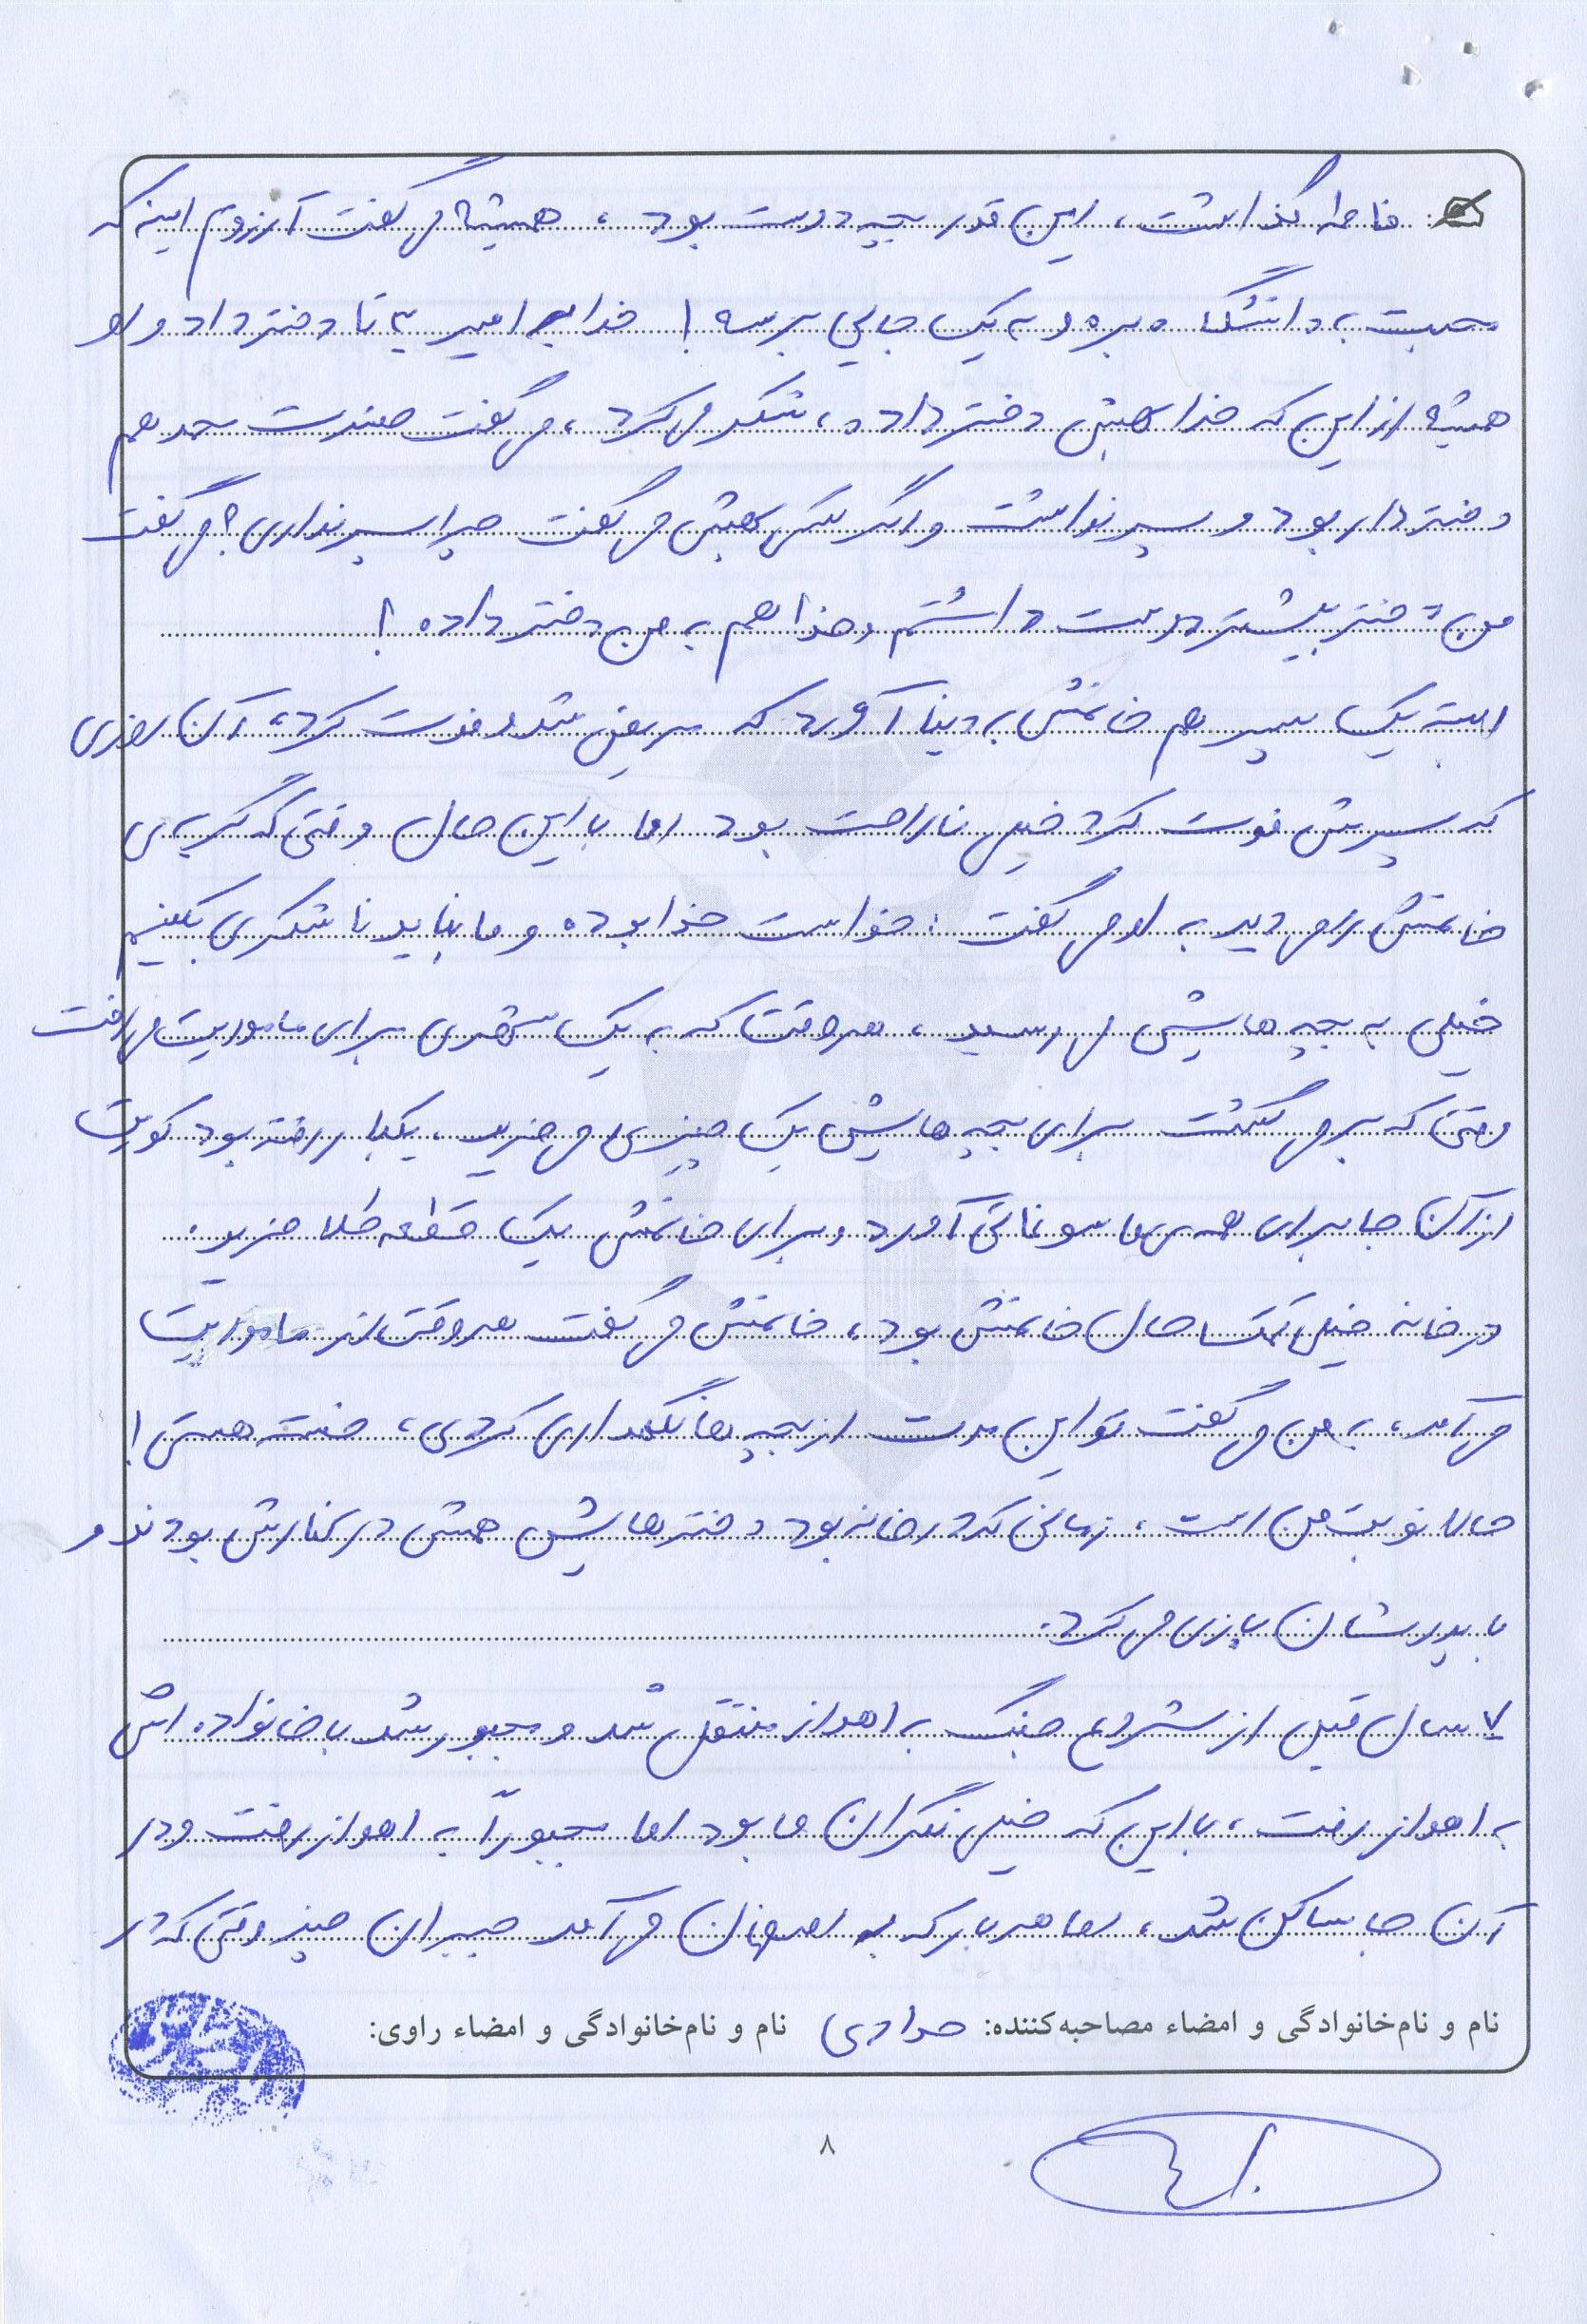 فاطمه گذاشت، این قدر بچه دوست بود، همیشه می گفت آرزوم اینه که
به دانشگاه بره و به یک جایی برسه! خدا به امیر ۳ تا دختر داد و او
همیشه از این که خدا بهش دختر داده، شکر می کرد، می گفت حضرت محمد هم
دختردار بود و پسر نداشت و اگر کسی بهش می گفت چرا پسر نداری؟ می گفت
من دختر بیشتر دوست داشتم و خدا هم به من دختر داده!
البته یک پسر هم خانمش به دنیا آورد که مریض شد و فوت کرد، آن روزی
که پسرش فوت کرد خیلی ناراحت بود اما با این حال وقتی که گریه ی
خانمش را می دید به او می گفت: خواست خدا بوده و ما نباید ناشکری بکنیم
خیلی به بچه هایش می رسید، هر وقت که به یک شهری برای ماموریت می رفت
وقتی که بر می گشت برای بچه هایش یک چیزی می خرید، یکبار رفته بود کویت
از آن جا برای همه ی ما سوغاتی آورد و برای خانمش یک قطعه طلا خرید.
در خانه خیلی کمک حال خانمش بود، خانمش می گفت هر وقت از ماموریت
می آمد، به من می گفت تو این مدت از بچه ها نگهداری کردی، خسته هستی!
حالا نوبت من است، زمانی که در خانه بود دخترهایش همش در کنارش بودند و
با پدرشان بازی می کرد.
۷ سال قبل از شروع جنگ به اهواز منتقل شد و مجبور شد با خانواده اش
به اهواز رفت، با این که خیلی نگران ما بود اما مجبوراً به اهواز رفت و در
آن جا ساکن شد، اما هر بار که به اصفهان می آمد جبران چیز وقتی که در
نام و نام‌خانوادگی و امضاء مصاحبه‌کننده: حدادی نام و نام‌خانوادگی و امضاء راوی:
۸